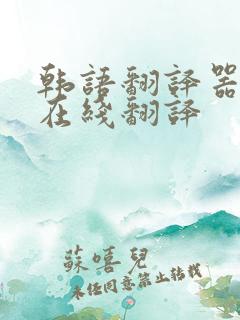 韩語翻译器
在綫翻译
蘇嘻兒
未经同意禁止转载